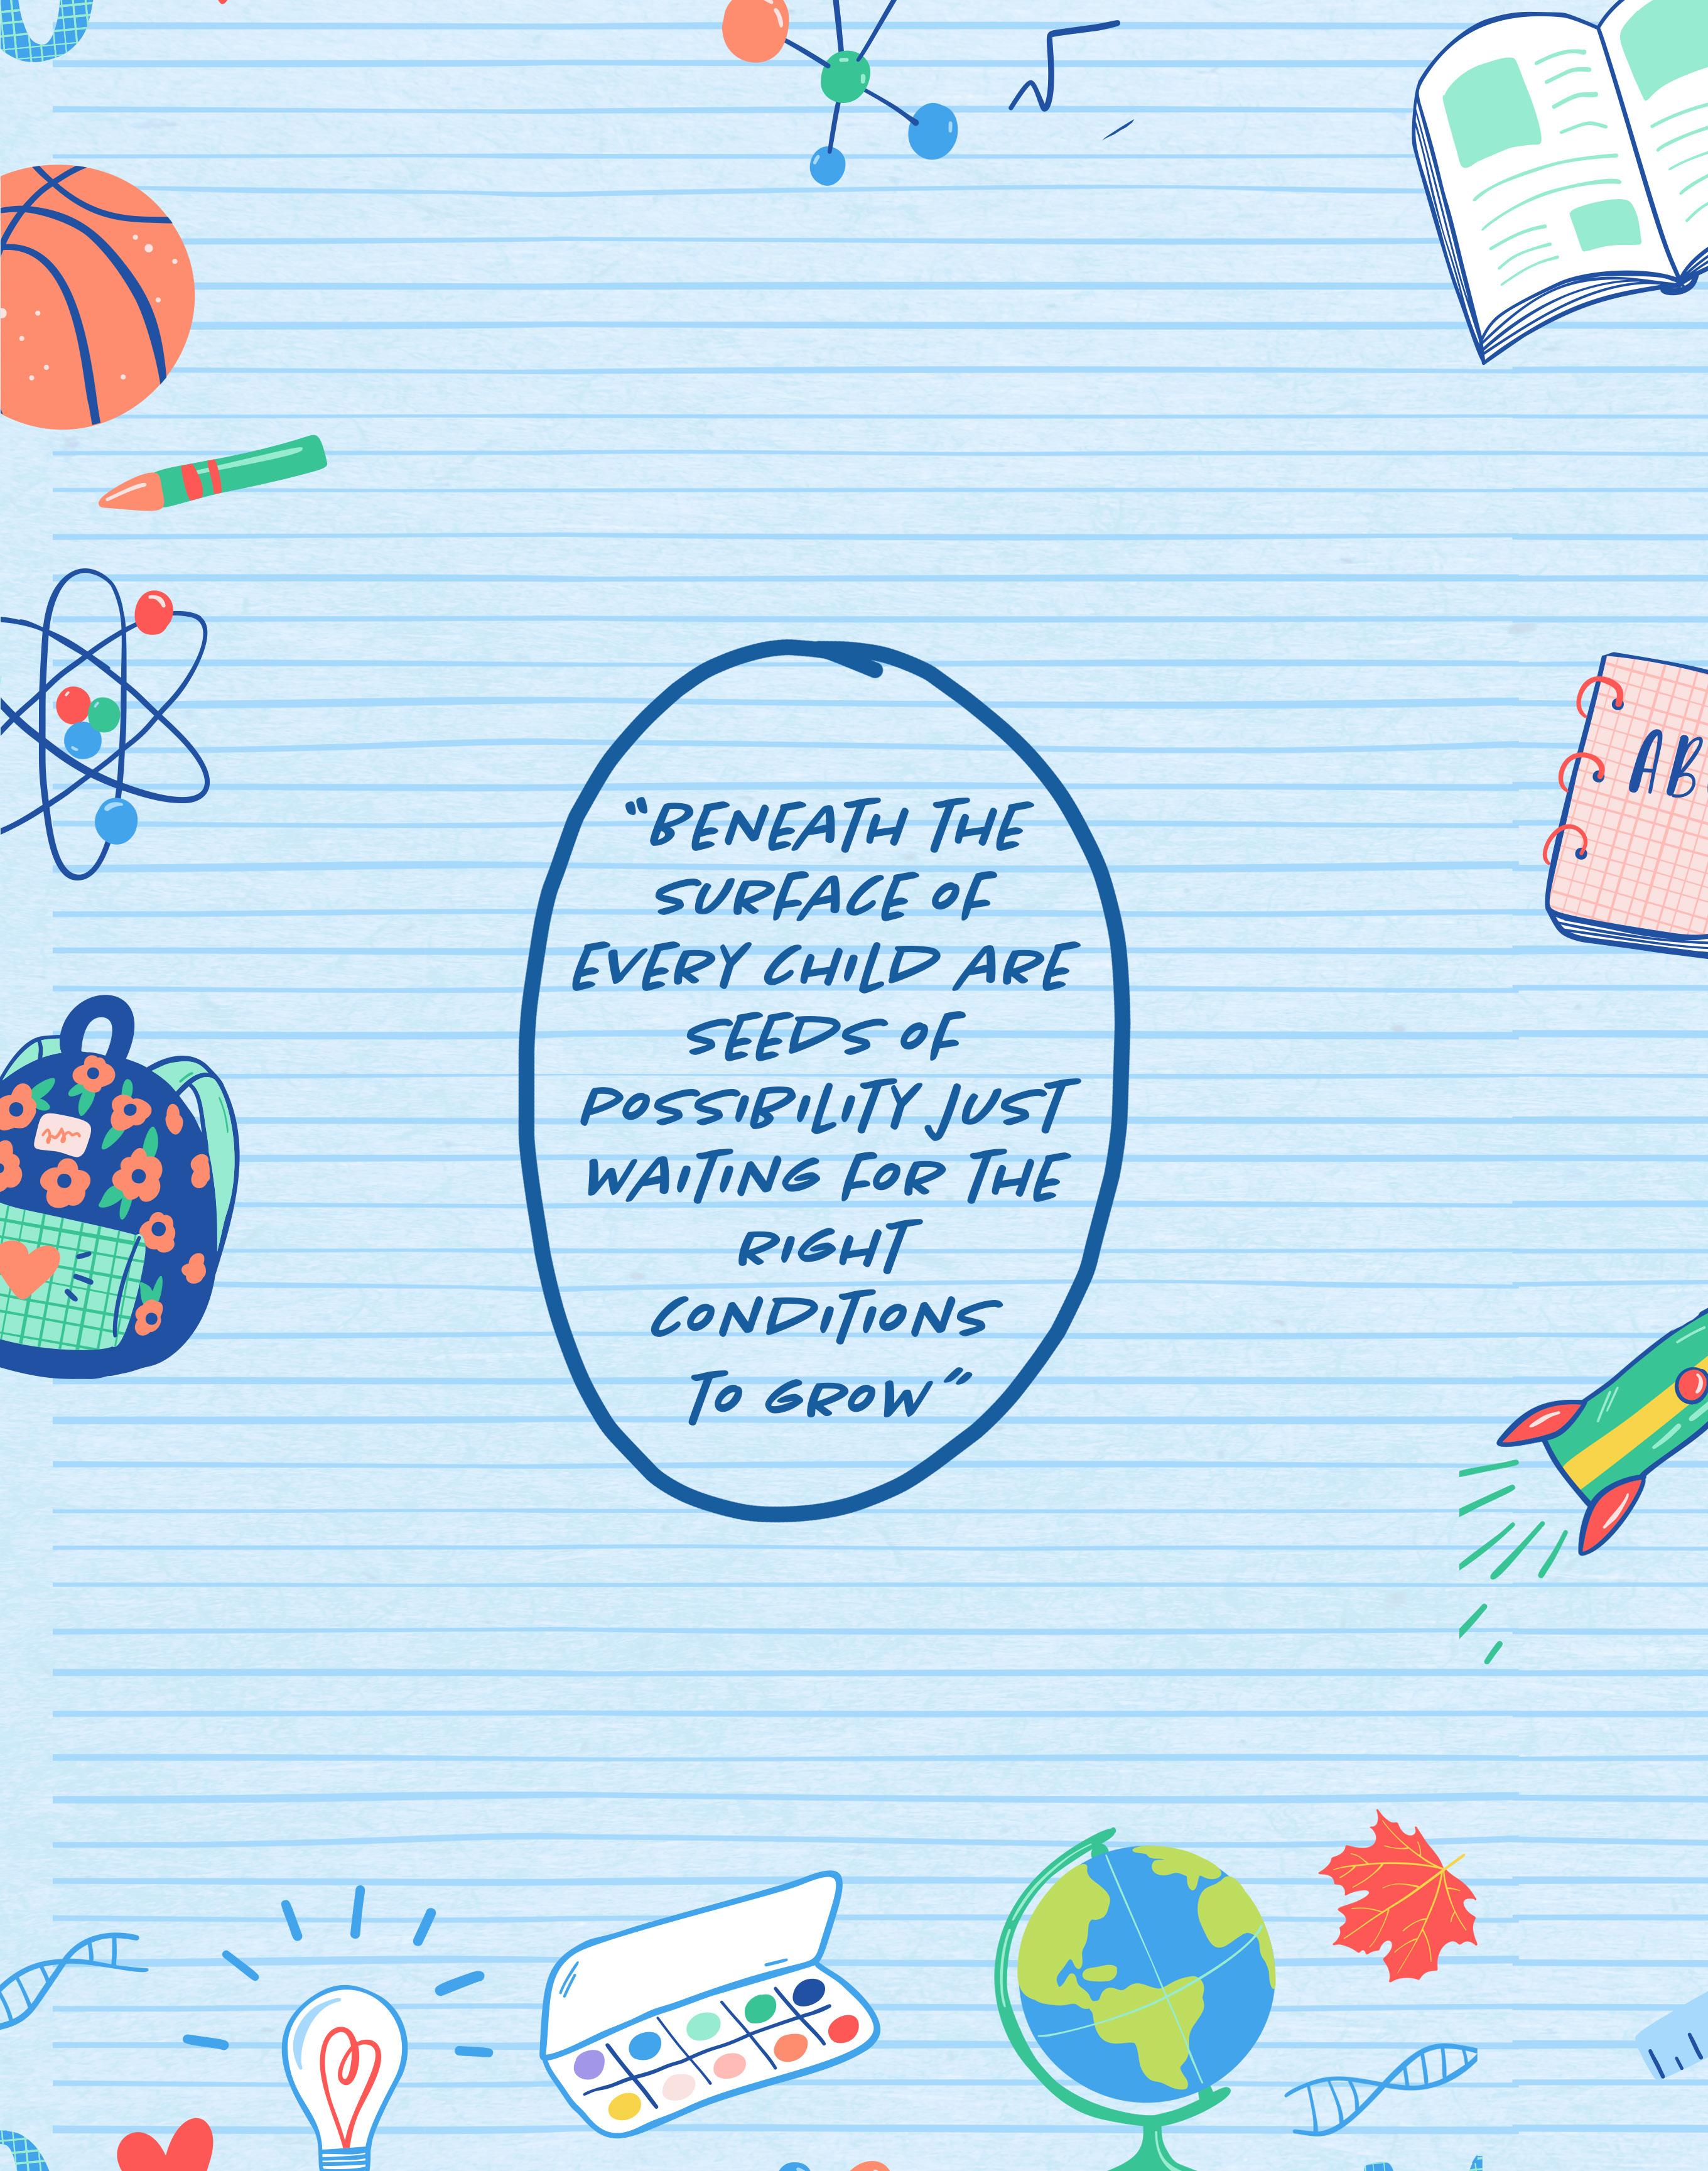 “BENEATH THE
SURFACE OF
EVERY CHILD ARE
SEEDS OF
POSSIBILITY JUST
WAITING FOR THE
RIGHT
CONDITIONS
TO GROW”
AB